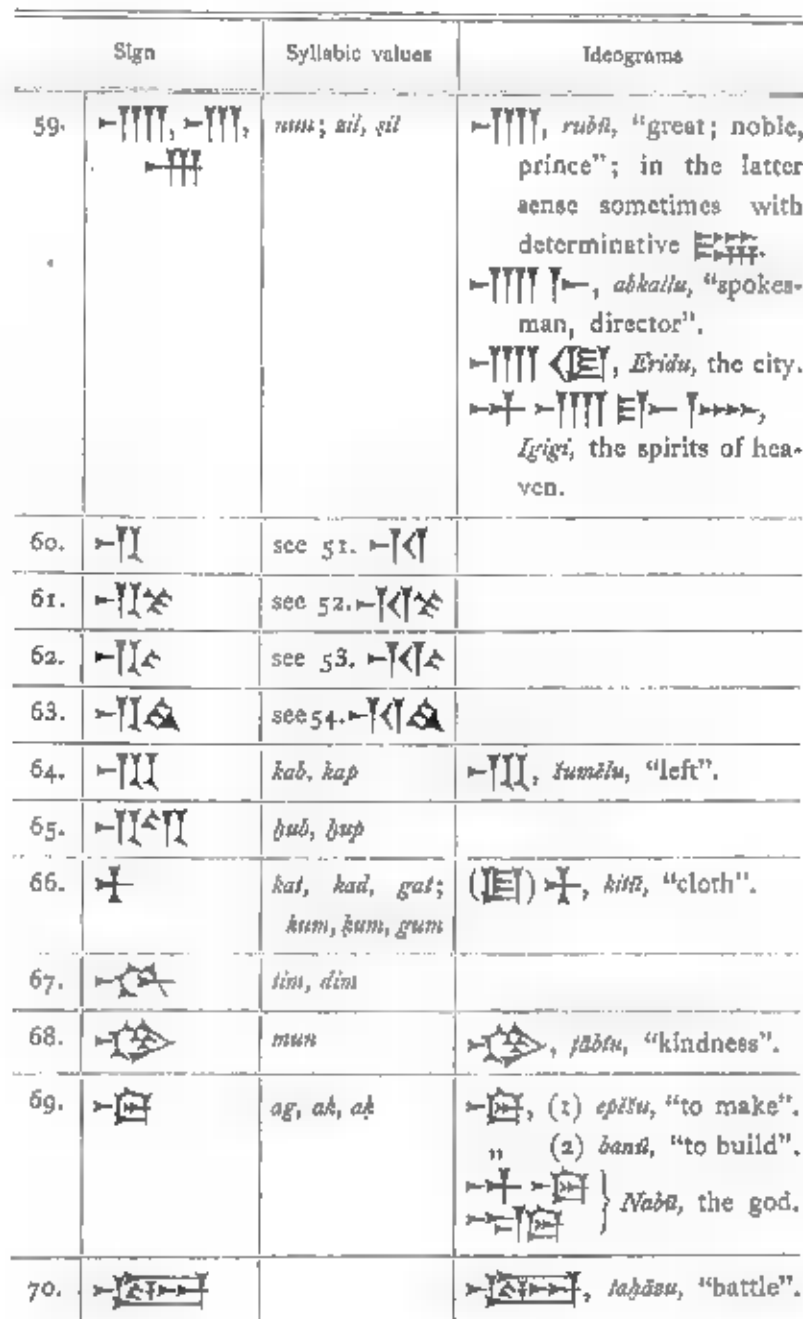 Sign Syllabic values Ideograms
59. 𒉣, nun; zil, ṣil 𒉣, rubū, “great; noble,
prince”; in the latter
sense sometimes with
determinative
𒉣𒈨, abkallu, “spokes-
man, director”.
𒉣𒆠, Eridu, the city.
𒀭𒉣
Igigi, the spirits of hea-
ven.
60. see 51.
61. see 52.
62. see 53.
63. see 54.
64. kab, kap šumēlu, “left”.
65. ḫub, ḫup
66. kat, kad, gat; kitū, “cloth”.
kum, ḳum, gum
67. tim, dim
68. mun ṭābtu, “kindness”.
69. 𒀝 ag, ak, aḳ 𒀝, (1) epēšu, “to make”.
„ (2) banū, “to build”.
𒀭𒀝 } Nabū, the god.
70. taḫāzu, “battle”.